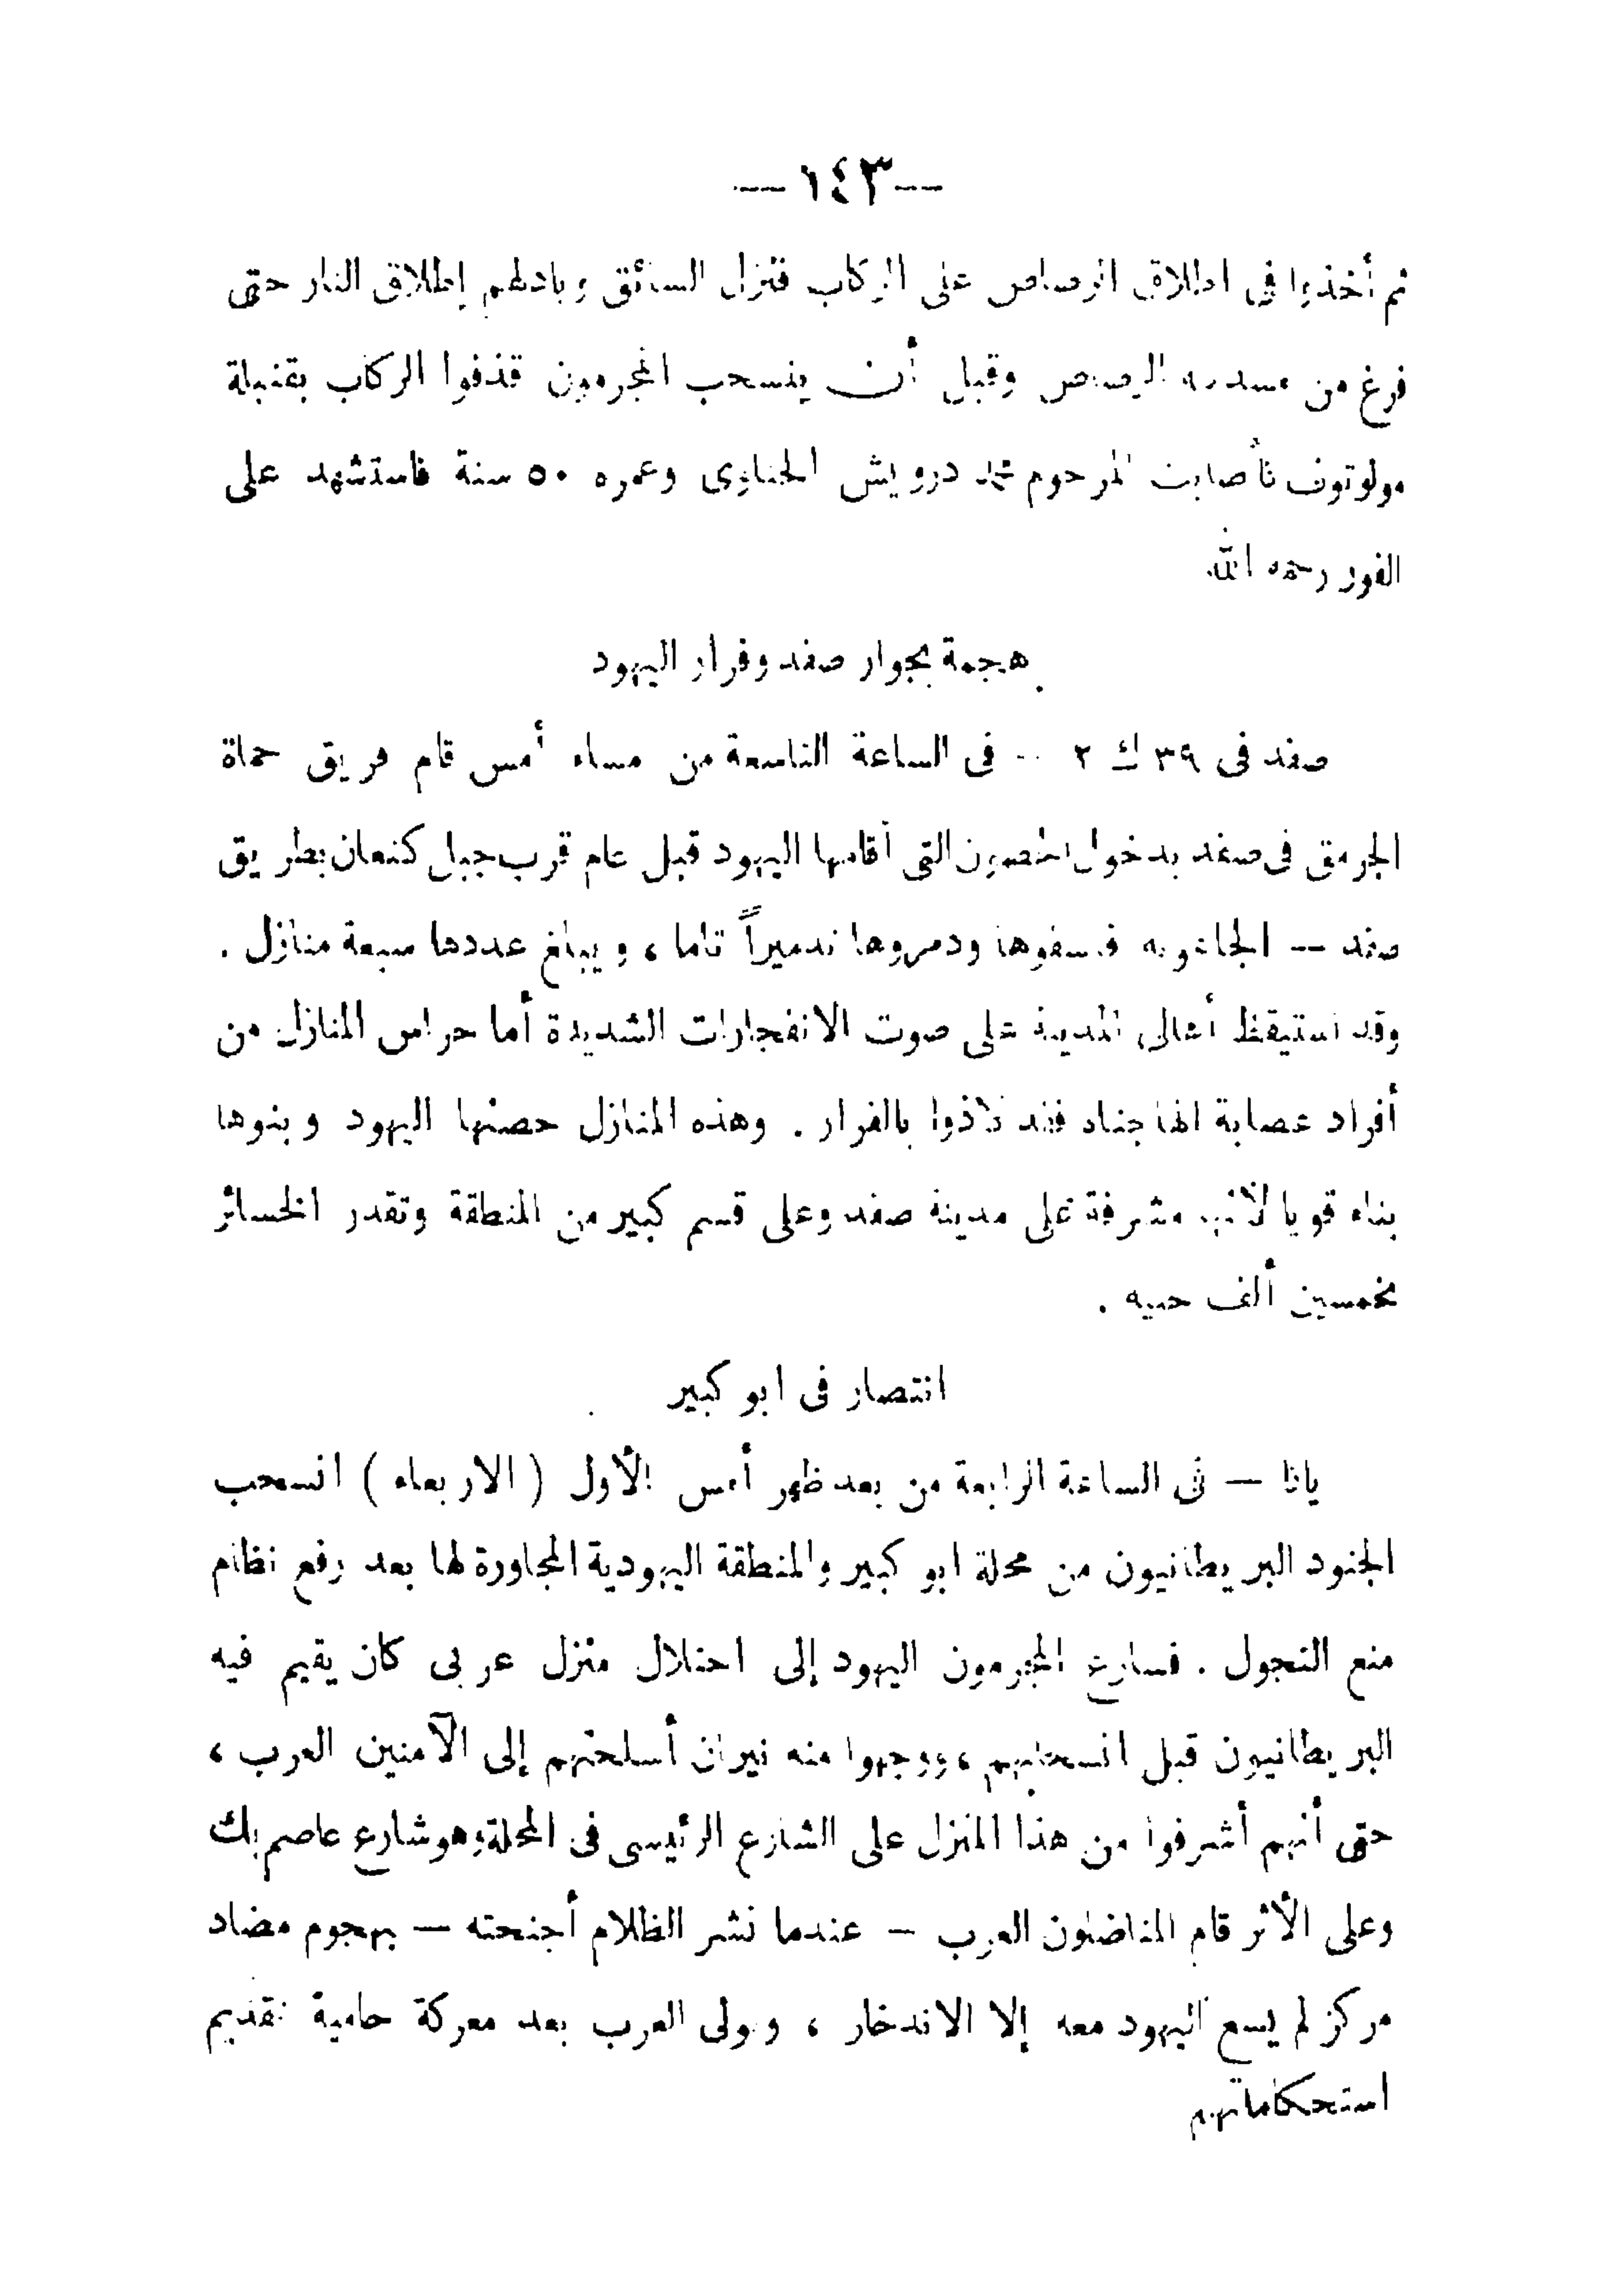 — ١٤٣ —
ثم أخذوا في اطلاق الرصاص على الركاب فنزل السائق وبادلهم إطلاق النار حتى
فرغ من مسدسه الرصاص وقبل أن ينسحب المجرمون قذفوا الركاب بقنبلة
مولوتوف فأصابت المرحوم محمد درويش الجناوى وعمره ٥٠ سنة فاستشهد على
الفور رحمه الله
هجمة بجوار صفد وفرار اليهود
صفد فى ٣٩ ك ٢ -- فى الساعة التاسعة من مساء أمس قام فريق حماة
الجرمق فى صفد بدخول الحصون التى أقامها اليهود قبل عام قرب جبل كنعان بطريق
صفد -- الجاعونه فنسفوها ودمروها تدميراً تاما ، ويبلغ عددها سبعة منازل .
وقد استيقظ أهالى المدينة على صوت الانفجارات الشديدة أما حراس المنازل من
أفراد عصابة الهاجناه فقد لاذوا بالفرار . وهذه المنازل حصنها اليهود وبنوها
بناء قويا لأنها مشرفة على مدينة صفد وعلى قسم كبير من المنطقة وتقدر الخسائر
بخمسين ألف جنيه .
انتصار فى ابو كبير
يافا — فى الساعة الرابعة من بعد ظهر أمس الأول ( الاربعاء ) انسحب
الجنود البريطانيون من محلة ابو كبير والمنطقة اليهودية المجاورة لها بعد رفع نظام
منع التجول . فسارع المجرمون اليهود إلى احتلال منزل عربى كان يقيم فيه
البريطانيون قبل انسحابهم ، ووجهوا منه نيران أسلحتهم إلى الآمنين العرب ،
حتى أنهم أشرفوا من هذا المنزل على الشارع الرئيسى فى المحلة وهو شارع عاصم بك
وعلى الأثر قام المناضلون العرب — عندما نشر الظلام أجنحته — بهجوم مضاد
مركز لم يسع اليهود معه إلا الاندحار ، وولى العرب بعد معركة حامية تقديم
استحكاماتهم